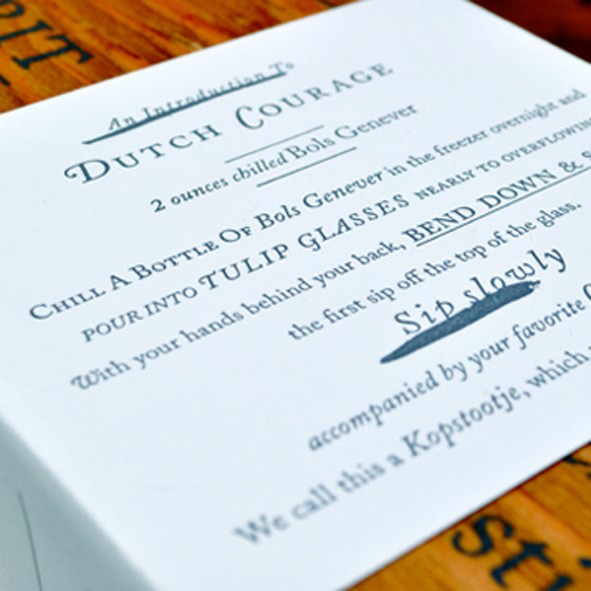 An Introduction To
DUTCH COURAGE
2 ounces chilled Bols Genever
CHILL A BOTTLE OF Bols Genever in the freezer overnight and
POUR INTO TULIP GLASSES NEARLY TO OVERFLOWING
With your hands behind your back, BEND DOWN & S
the first sip off the top of the glass.
Sip slowly
accompanied by your favorite
We call this a Kopstootje, which